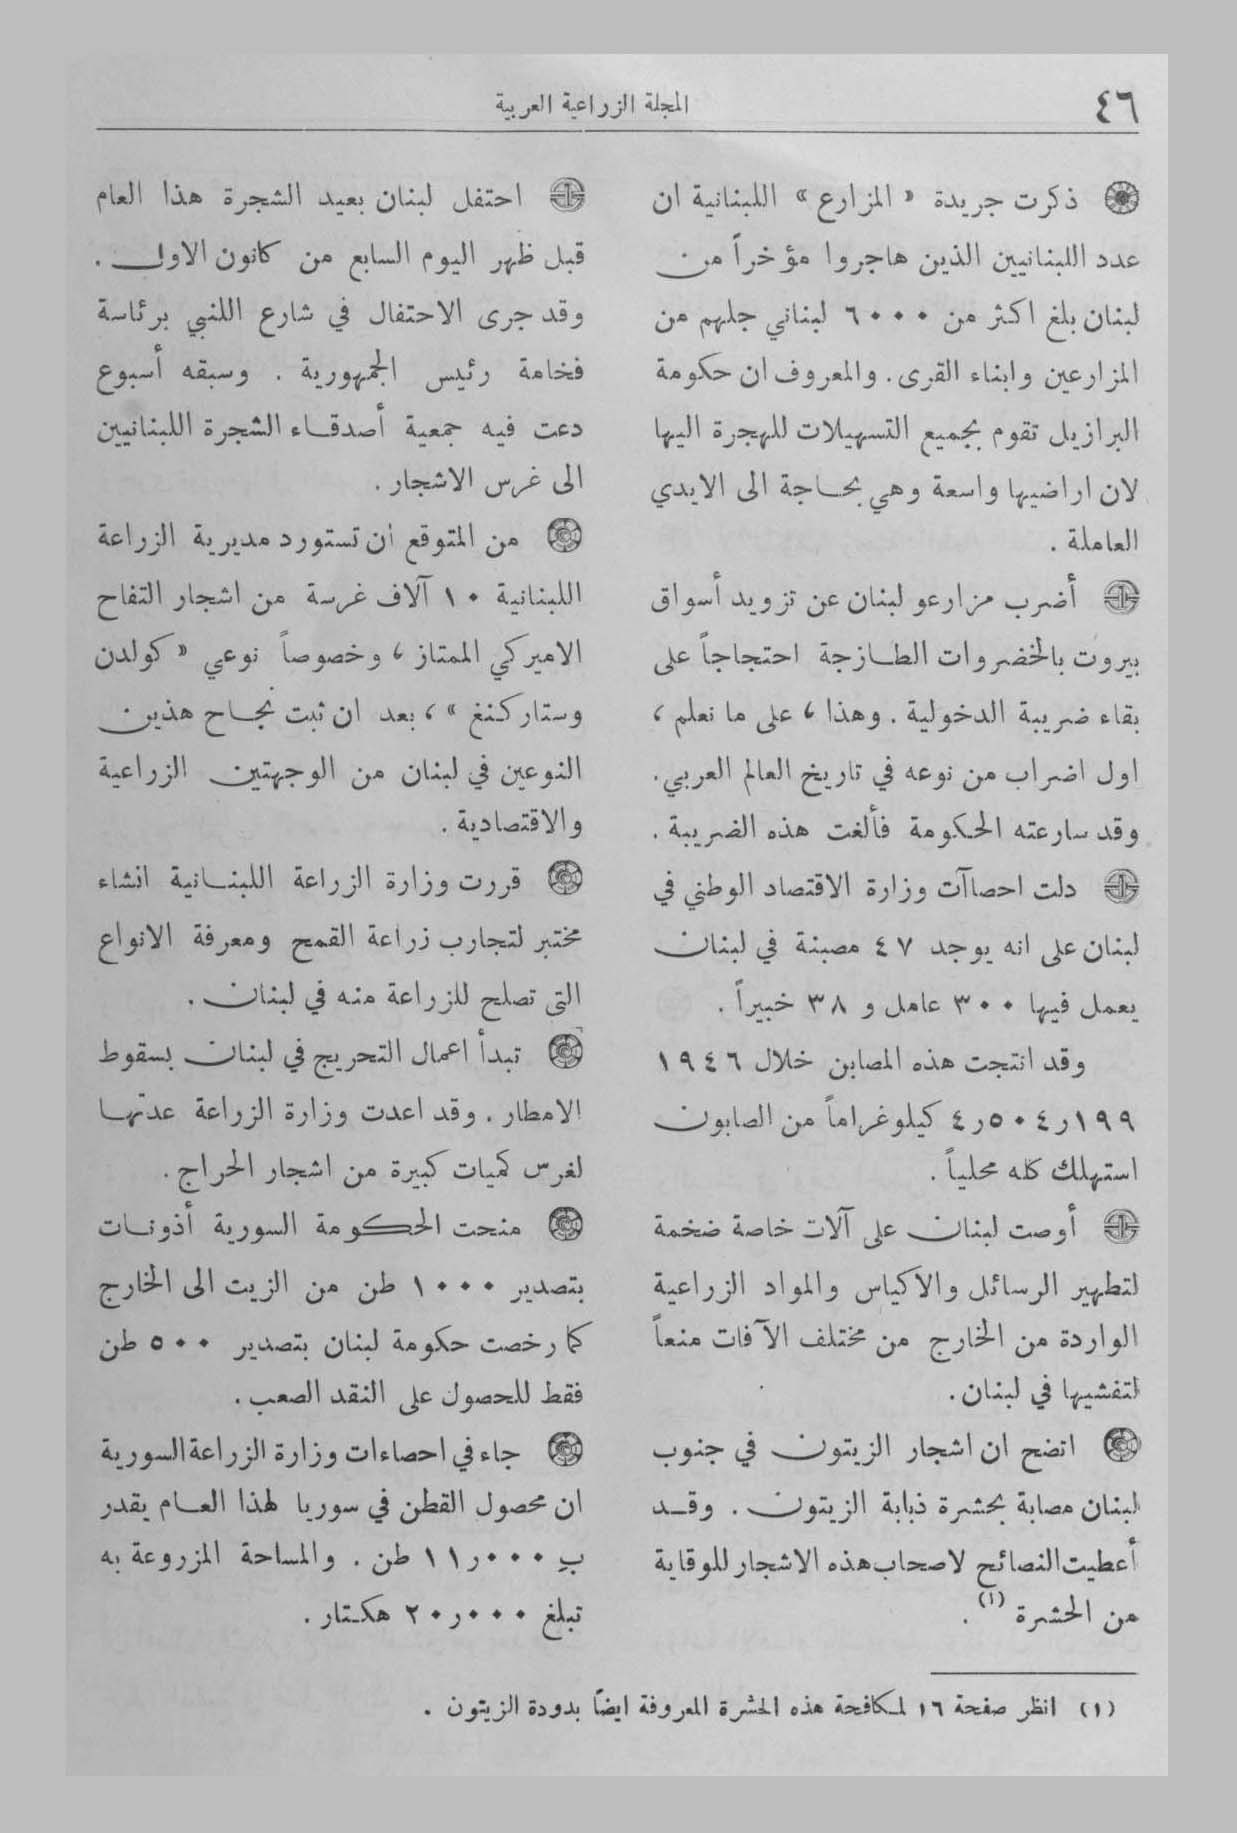 ٤٦
المجلة الزراعية العربية
ذكرت جريدة « المزارع » اللبنانية ان
عدد اللبنانيين الذين هاجروا مؤخراً من
لبنان بلغ اكثر من ٦٠٠٠ لبناني جلهم من
المزارعين وابناء القرى. والمعروف ان حكومة
البرازيل تقوم بجميع التسهيلات للهجرة اليها
لان اراضيها واسعة وهي بحاجة الى الايدي
العاملة .
أضرب مزارعو لبنان عن تزويد أسواق
بيروت بالخضروات الطازجة احتجاجاً على
بقاء ضريبة الدخولية . وهذا ، على ما نعلم ،
اول اضراب من نوعه في تاريخ العالم العربي.
وقد سارعته الحكومة فألغت هذه الضريبة .
دلت احصاآت وزارة الاقتصاد الوطني في
لبنان على انه يوجد ٤٧ مصبنة في لبنان
يعمل فيها ٣٠٠ عامل و ٣٨ خبيراً .
وقد انتجت هذه المصابن خلال ١٩٤٦
١٩٩ر٥٠٤ر٤ كيلوغراماً من الصابون
استهلك كله محلياً .
أوصت لبنان على آلات خاصة ضخمة
لتطهير الرسائل والاكياس والمواد الزراعية
الواردة من الخارج من مختلف الآفات منعاً
لتفشيها في لبنان.
اتضح ان اشجار الزيتون في جنوب
لبنان مصابة بحشرة ذبابة الزيتون . وقد
أعطيت النصائح لاصحاب هذه الاشجار للوقاية
من الحشرة (١) .
احتفل لبنان بعيد الشجرة هذا العام
قبل ظهر اليوم السابع من كانون الاول .
وقد جرى الاحتفال في شارع اللنبي برئاسة
فخامة رئيس الجمهورية . وسبقه أسبوع
دعت فيه جمعية أصدقاء الشجرة اللبنانيين
الى غرس الاشجار .
من المتوقع ان تستورد مديرية الزراعة
اللبنانية ١٠ آلاف غرسة من اشجار التفاح
الاميركي الممتاز ، وخصوصاً نوعي « كولدن
وستاركنغ » ، بعد ان ثبت نجاح هذين
النوعين في لبنان من الوجهتين الزراعية
والاقتصادية .
قررت وزارة الزراعة اللبنانية انشاء
مختبر لتجارب زراعة القمح ومعرفة الانواع
التى تصلح للزراعة منه في لبنان .
تبدأ اعمال التحريج في لبنان بسقوط
الامطار . وقد اعدت وزارة الزراعة عدتها
لغرس كميات كبيرة من اشجار الحراج .
منحت الحكومة السورية أذونات
بتصدير ١٠٠٠ طن من الزيت الى الخارج
كما رخصت حكومة لبنان بتصدير ٥٠٠ طن
فقط للحصول على النقد الصعب .
جاء في احصاءات وزارة الزراعة السورية
ان محصول القطن في سوريا لهذا العام يقدر
بـِ ٠٠٠ر١١ طن . والمساحة المزروعة به
تبلغ ٠٠٠ر٢٠ هكتار .
(١) انظر صفحة ١٦ لمكافحة هذه الحشرة المعروفة ايضاً بدودة الزيتون .